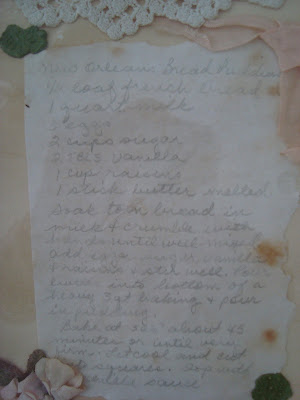 New Orleans Bread Pudding
loaf french bread
1 quart milk
3 eggs
2 cups sugar
2 Vanilla
1 cup raisins
1 stick butter melted
Soak torn bread in
milk & crumble with
hands until well mixed
add eggs, sugar, vanilla
& raisins & stir well. Pour
butter into bottom of a
heavy 3qt baking & pour
in pudding.
Bake at about 45
minutes or until very
firm. Let cool and cut
squares. Top with
sauce